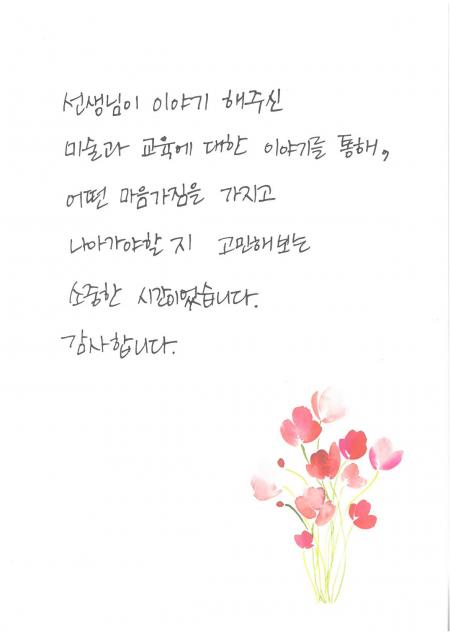 선생님이 이야기 해주신
미술과 교육에 대한 이야기를 통해,
어떤 마음가짐을 가지고
나아가야할 지 고민해보는
소중한 시간이었습니다.
감사합니다.